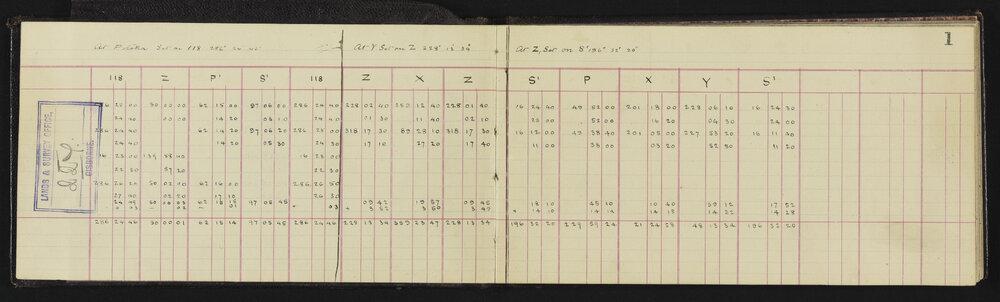 1
At Y Set on Z 228° 13' 34"
At Z, Set on S' 196° 32' 20"
118 Z P' S' 118 Z X Z S' P X Y S'
26 25 00 30 00 00 62 15 00 97 06 00 286 24 40 228 02 40 350 12 40 228 01 40 16 24 40 49 52 00 201 18 00 228 06 10 16 24 30
24 40 00 00 14 20 06 10 24 30 01 30 11 40 02 10 25 00 52 00 16 20 04 30 24 00
286 24 40 62 14 20 97 06 20 286 25 00 318 17 30 89 28 10 318 17 30 16 12 00 49 38 40 201 05 00 227 53 20 16 11 30
24 40 14 20 05 30 24 30 17 10 27 20 17 40 11 00 38 00 03 20 52 50 11 20
16 23 00 139 58 40 16 23 00
22 30 59 20 22 30
286 26 20 50 02 00 62 16 00 286 26 50
27 30 02 20 17 10 26 30
97 05 45 09 42 19 57 09 45 18 10 45 10 10 40 59 12 17 52
03 3 52 3 50 3 49 14 10 14 14 14 18 14 22 14 28
286 24 46 30 00 01 62 15 14 97 05 45 286 24 46 228 13 34 359 23 47 228 13 34 196 32 20 229 59 24 21 24 58 48 13 34 196 32 20
LANDS & SURVEY OFFICE
GISBORNE